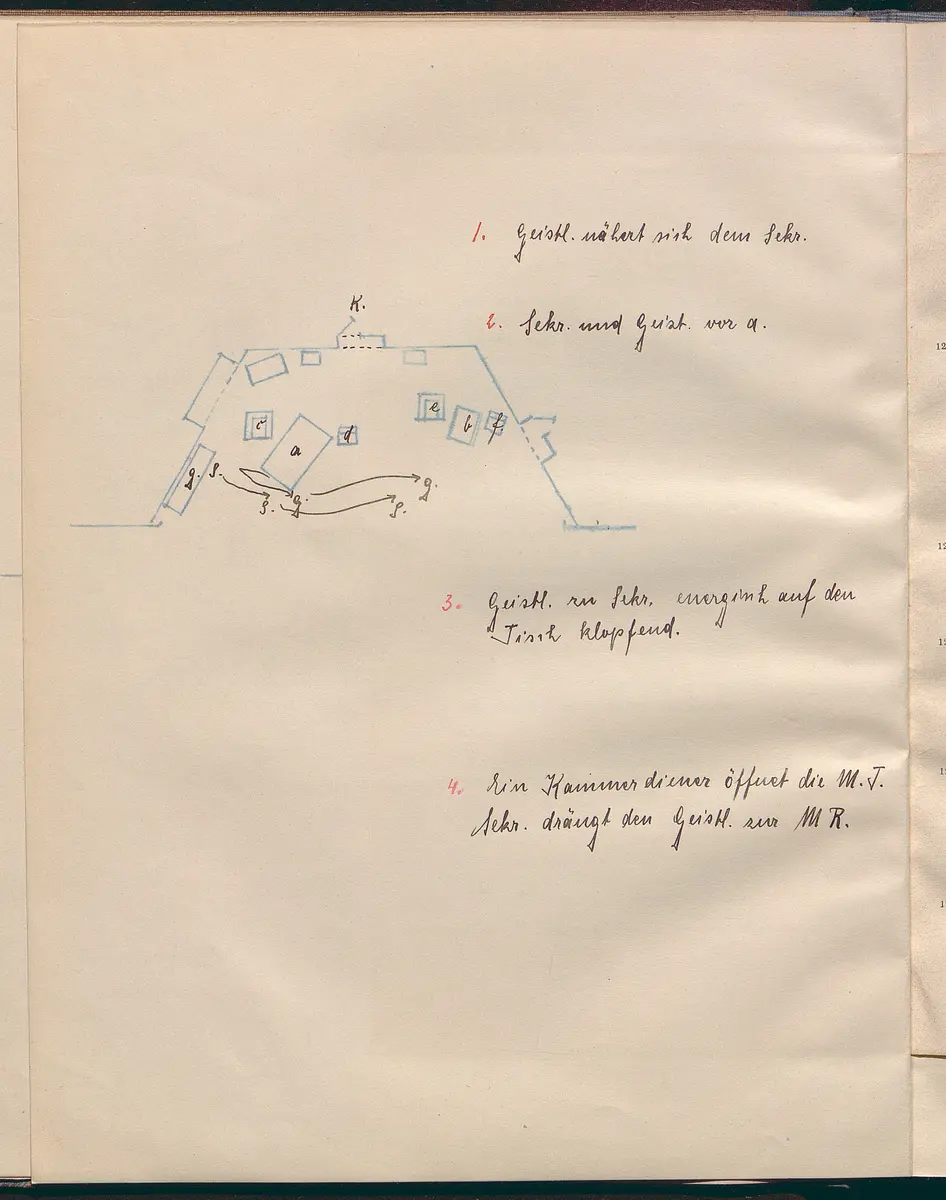 1. Geistl. nähert sich dem Sekr.
K.
2. Sekr. und Geist. vor a.
c
a
d
e
b
f
g. S.
g.
S.
g.
S.
3. Geistl. zu Sekr. energisch auf den
Tisch klopfend.
4. Ein Kammerdiener öffnet die M.T.
Sekr. drängt den Geistl. zur M R.
12
12
12
1
1